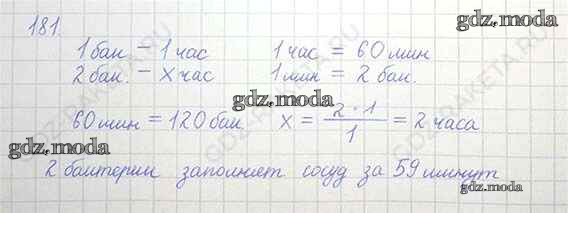 181.
gdz.moda
1 бак – 1 час 1 час = 60 мин
2 бак. – x час 1 мин = 2 бак.
gdz.moda
60 мин = 120 бак x = 2 · 1 / 1 = 2 часа
gdz.moda
2 бактерии заполняет сосуд за 59 минут
gdz.moda
GDZ-RAKETA.RU